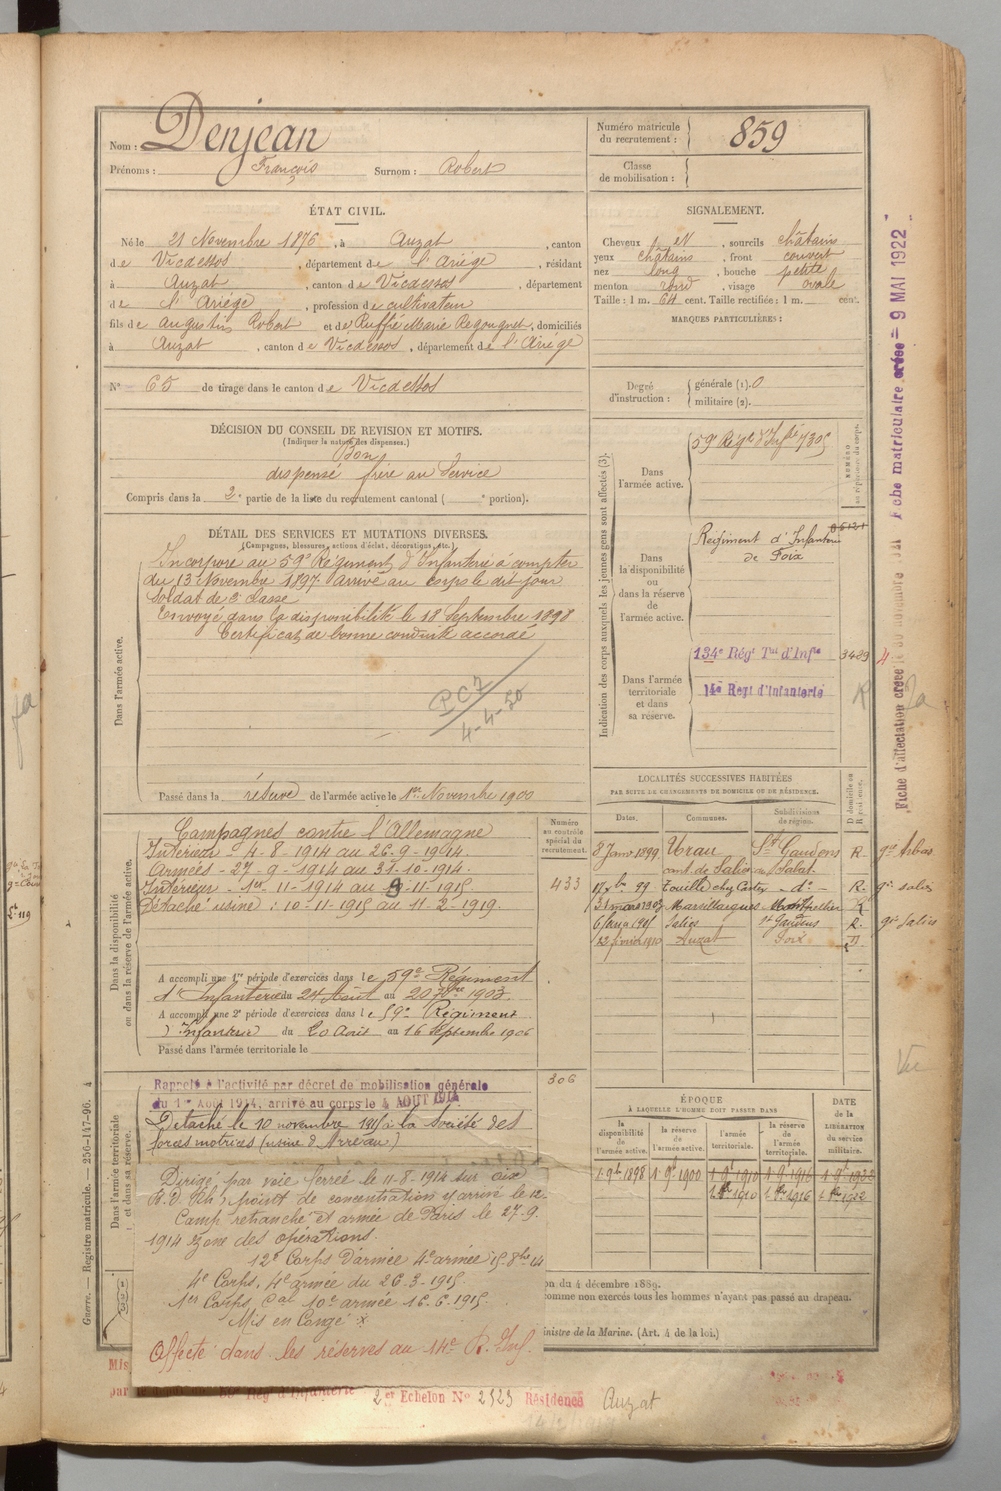 Nom : Denjean
Prénoms : François Surnom : Robert
Numéro matricule du recrutement : 859
Classe de mobilisation :
ÉTAT CIVIL.
Né le 21 Novembre 1876, à Auzat, canton
de Vicdessos, département de l'Ariège, résidant
à Auzat, canton de Vicdessos, département
de l'Ariège, profession de cultivateur
fils de Augustin Robert et de Ruffié Marie, domiciliés
à Auzat, canton de Vicdessos, département de l'Ariège
N° 65 de tirage dans le canton de Vicdessos
SIGNALEMENT.
Cheveux et, sourcils châtains
yeux châtains, front couvert
nez long, bouche petite
menton rond, visage ovale
Taille : 1 m. 64 cent. Taille rectifiée : 1 m. cent.
MARQUES PARTICULIÈRES :
Degré d'instruction : générale (1). 0
militaire (2).
DÉCISION DU CONSEIL DE REVISION ET MOTIFS.
(Indiquer la nature des dispenses.)
Bon
dispensé frère au Service
Compris dans la 2e partie de la liste du recrutement cantonal ( e portion).
DÉTAIL DES SERVICES ET MUTATIONS DIVERSES.
(Campagnes, blessures, actions d'éclat, décorations, etc.)
Dans l'armée active.
Incorporé au 59e Régiment d'Infanterie à compter
du 13 Novembre 1897. Arrivé au corps le dit jour
Soldat de 2e classe
Envoyé dans la disponibilité le 18 Septembre 1898
Certificat de bonne conduite accordé
4-4-50
Passé dans la réserve de l'armée active le 1er Novembre 1900
Indication des corps auxquels les jeunes gens sont affectés (3).
NUMÉRO
Dans l'armée active.
59e Régt d'Infie 7305
Dans la disponibilité ou dans la réserve de l'armée active.
Régiment d'Infanterie
de Foix
Dans l'armée territoriale et dans sa réserve.
134e Régt Tal d'Infie 3489
14e Regt d'Infanterie
Fiche matriculaire créée = 9 MAI 1922
LOCALITÉS SUCCESSIVES HABITÉES
PAR SUITE DE CHANGEMENTS DE DOMICILE OU DE RÉSIDENCE.
Dates. Communes. Subdivisions de région. D domicile ou R résidence.
8 Janv 1899 Urau St Gaudens R.
cant. de Salies du Salat
Touille chez Cortes - do - R. gie salies
31 mars 1903 Marsillargues Montpellier R
1905 Salies St Gaudens R. gie Salies
12 février 1910 Auzat Foix D
Dans la disponibilité ou dans la réserve de l'armée active.
Numéro au contrôle spécial du recrutement.
433
Campagnes contre l'Allemagne
Intérieur - 4-8-1914 au 26-9-1914.
Armées - 27-9-1914 au 31-10-1914.
Intérieur - 1er-11-1914 au 9-11-1915
Détaché usine : 10-11-1915 au 11-2-1919.
A accompli une 1re période d'exercices dans le 59e Régiment
d'Infanterie du 24 Août au 20 7bre 1903.
A accompli une 2e période d'exercices dans le 59e Régiment
d'Infanterie du 20 Août au 16 Septembre 1906
Passé dans l'armée territoriale le
Dans l'armée territoriale et dans sa réserve.
306
Rappelé à l'activité par décret de mobilisation générale
du 1er Août 1914, arrivé au corps le 4 AOUT 1914
Détaché le 10 novembre 1915 à la Société des
forces motrices (usine d'Arreau)
Dirigé par voie ferrée le 11-8-1914 sur Aix
(B. d. Rh) point de concentration y arrivé le 12.
Camp retranché et armée de Paris le 27-9.
1914 zone des opérations.
12e Corps d'armée 4e armée 15-8bre 14
4e Corps, 4e armée du 26-3-1915.
1er Corps, Cal 10e armée 16-6-1915.
Mis en Congé
Affecté dans les réserves au 14e R. Inf.
ÉPOQUE
À LAQUELLE L'HOMME DOIT PASSER DANS
la disponibilité de l'armée active. la réserve de l'armée active. l'armée territoriale. la réserve de l'armée territoriale. DATE de la LIBÉRATION du service militaire.
1 9b 1898 1 9b 1900 1 9b 1910 1 9b 1916 1 9b 1922
1 8bre 1910 1 8bre 1916 1 8bre 1922
du 4 décembre 1889.
comme non exercés tous les hommes n'ayant pas passé au drapeau.
Ministre de la Marine. (Art. 4 de la loi.)
Guerre. — Registre matricule. — 256-147-96. 4
2er Echelon No 2523 Résidence Auzat